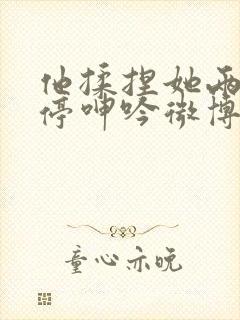 他揉捏她两
停呻吟微博
童心亦晚